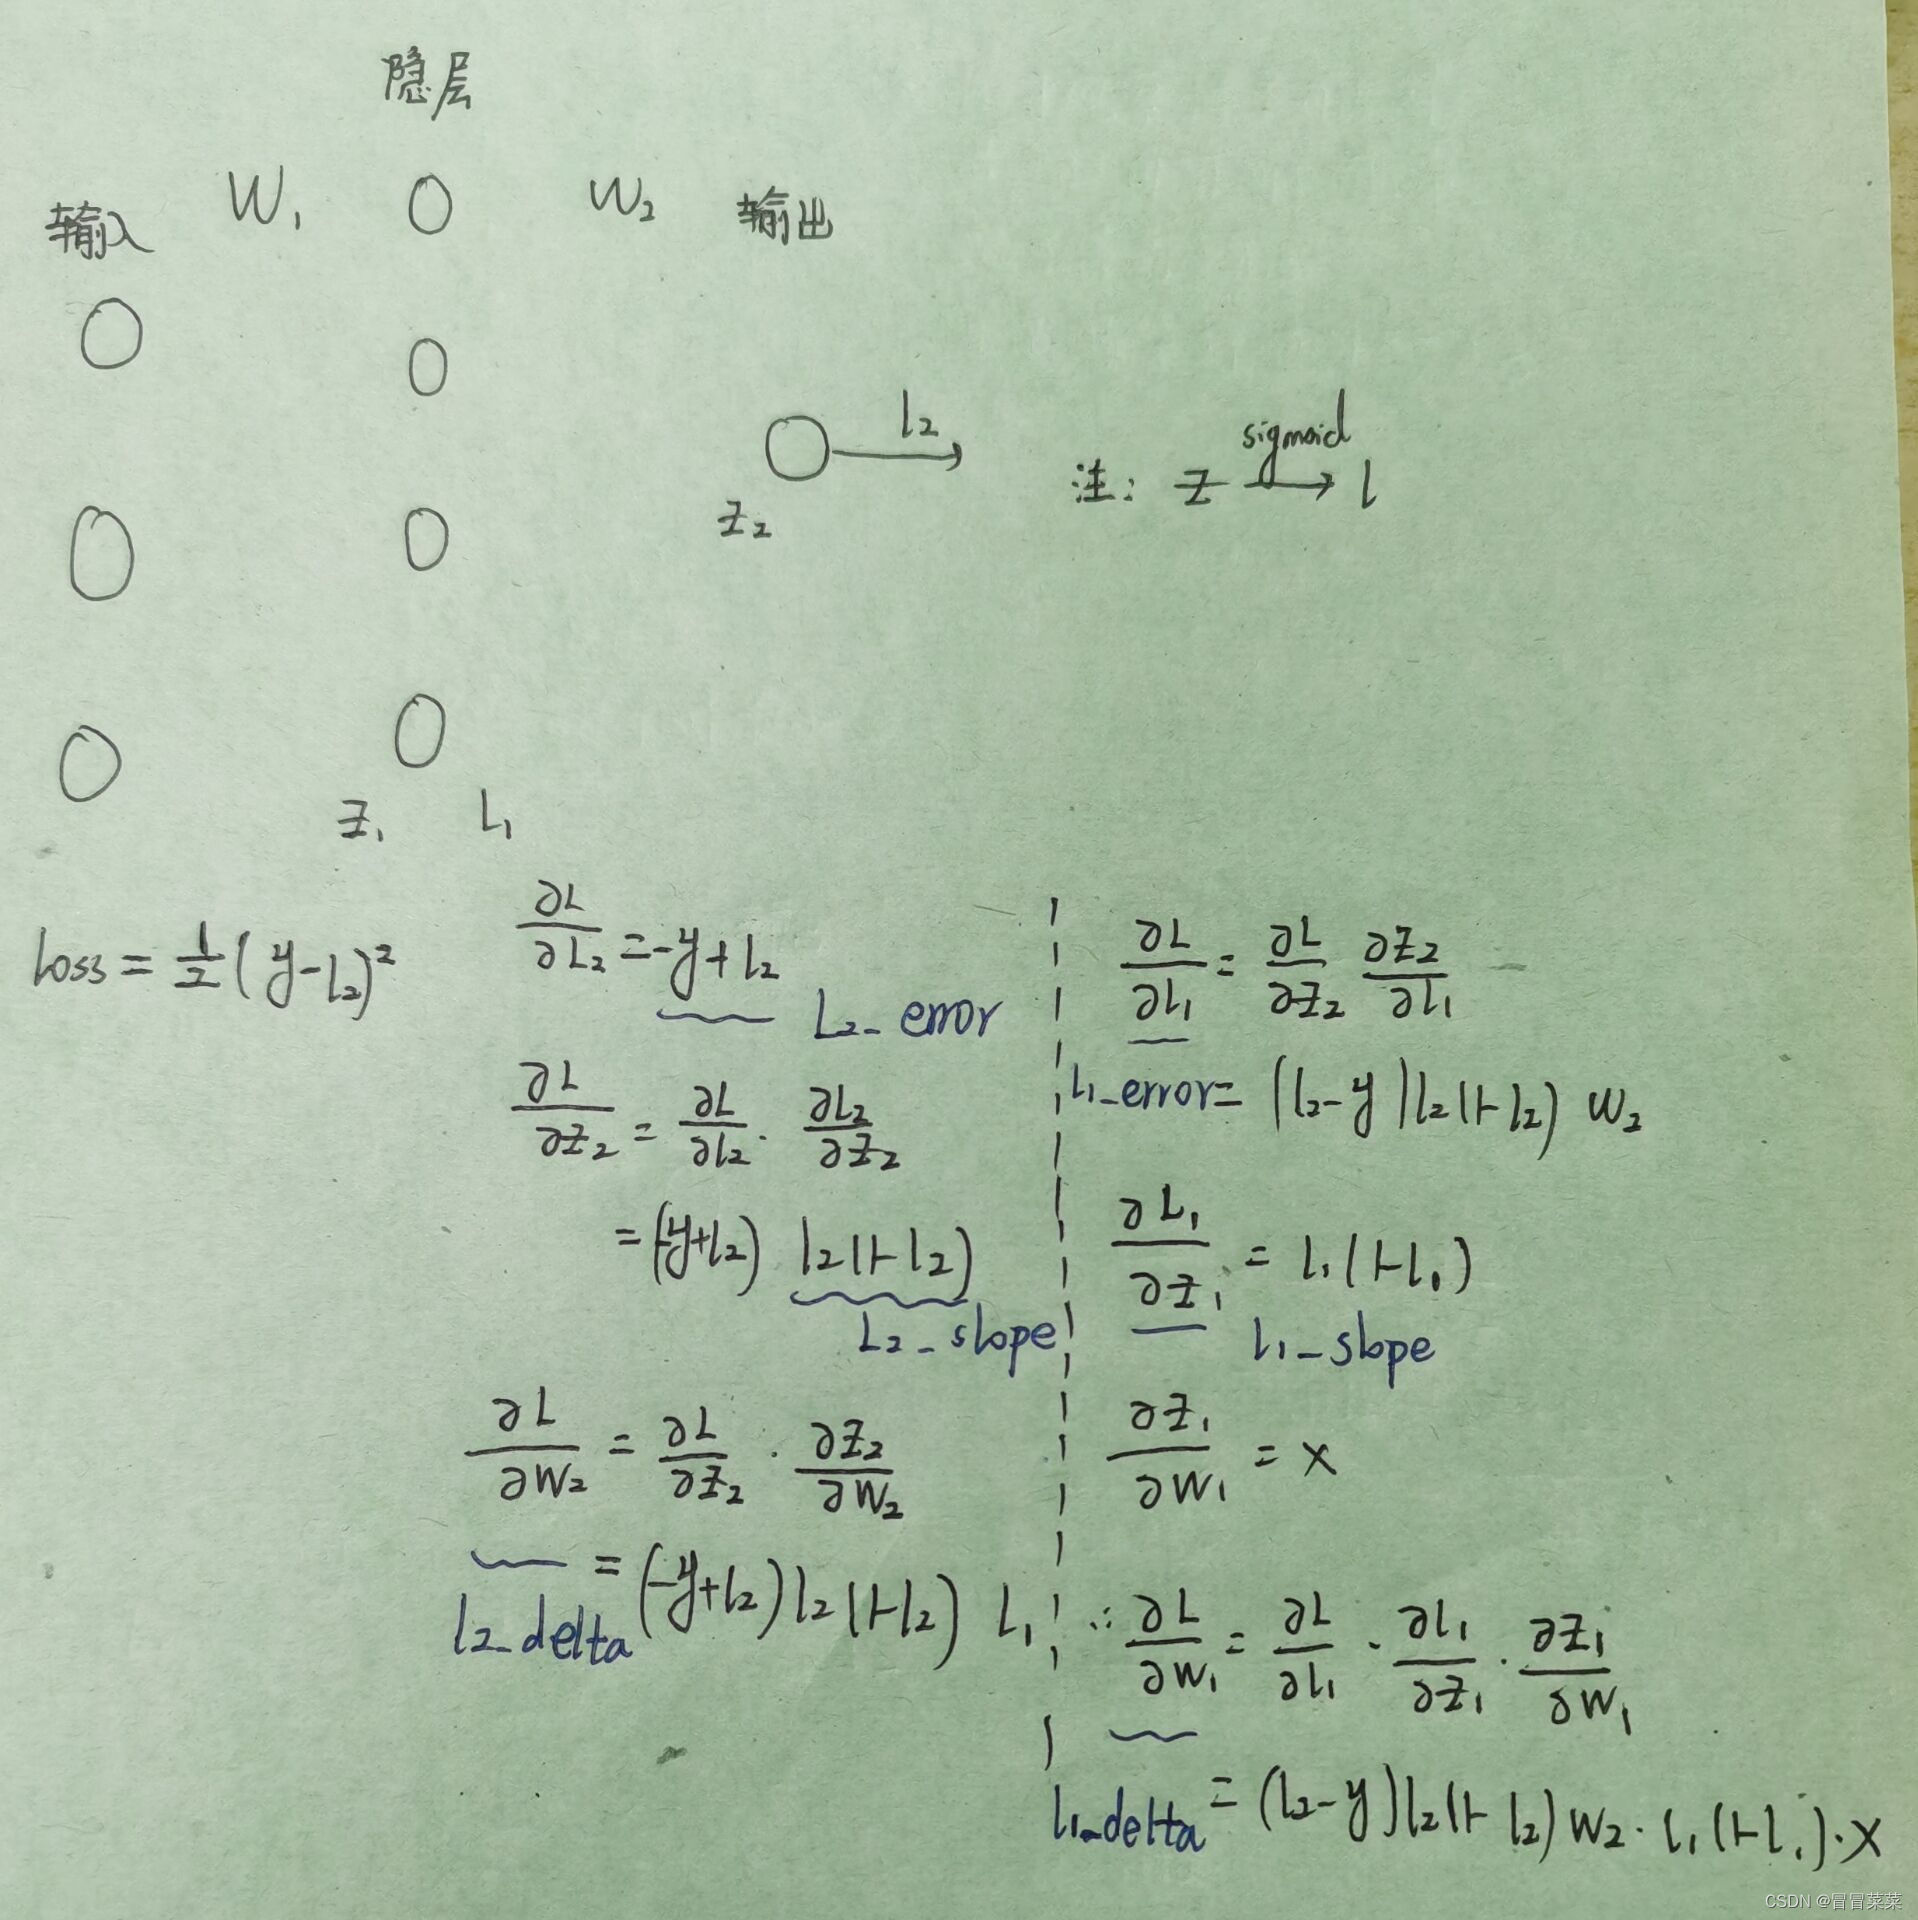 隐层
输入 W₁ W₂ 输出
l₂
sigmoid
注: Z → l
Z₂
Z₁ L₁
loss = 1/2 (y-l₂)²
∂L/∂L₂ = -y+l₂
L₂_error
∂L/∂Z₂ = ∂L/∂l₂ · ∂L₂/∂Z₂
= (-y+l₂) l₂(1-l₂)
L₂_slope
∂L/∂W₂ = ∂L/∂Z₂ · ∂Z₂/∂W₂
= (-y+l₂) l₂(1-l₂) L₁
l₂_delta
∂L/∂l₁ = ∂L/∂Z₂ ∂Z₂/∂l₁
l₁_error = (l₂-y) l₂(1-l₂) W₂
∂L₁/∂Z₁ = l₁(1-l₁)
l₁_slope
∂Z₁/∂W₁ = x
∴ ∂L/∂W₁ = ∂L/∂l₁ · ∂l₁/∂Z₁ · ∂Z₁/∂W₁
l₁_delta = (l₂-y) l₂(1-l₂) W₂ · l₁(1-l₁) · X
CSDN @冒冒菜菜